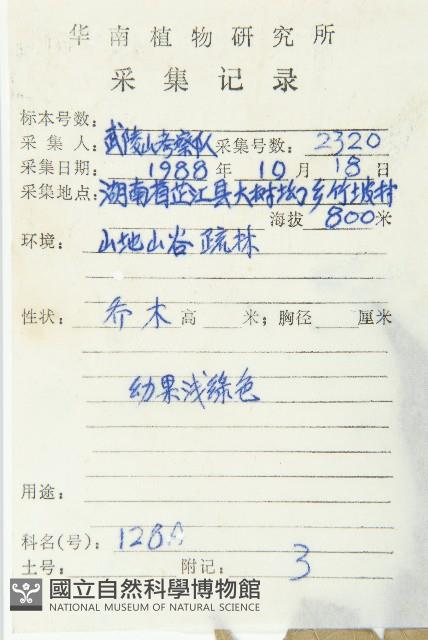 华南植物研究所
采集记录
标本号数:
采集人: 武陵山考察队 采集号数: 2320
采集日期: 1988年10月18日
采集地点: 湖南省芷江县大树坳乡竹坡村
海拔 800米
环境: 山地山谷疏林
性状: 乔木 高 米; 胸径 厘米
幼果浅綠色
用途:
科名(号): 128
土号: 附记: 3
國立自然科學博物館
NATIONAL MUSEUM OF NATURAL SCIENCE